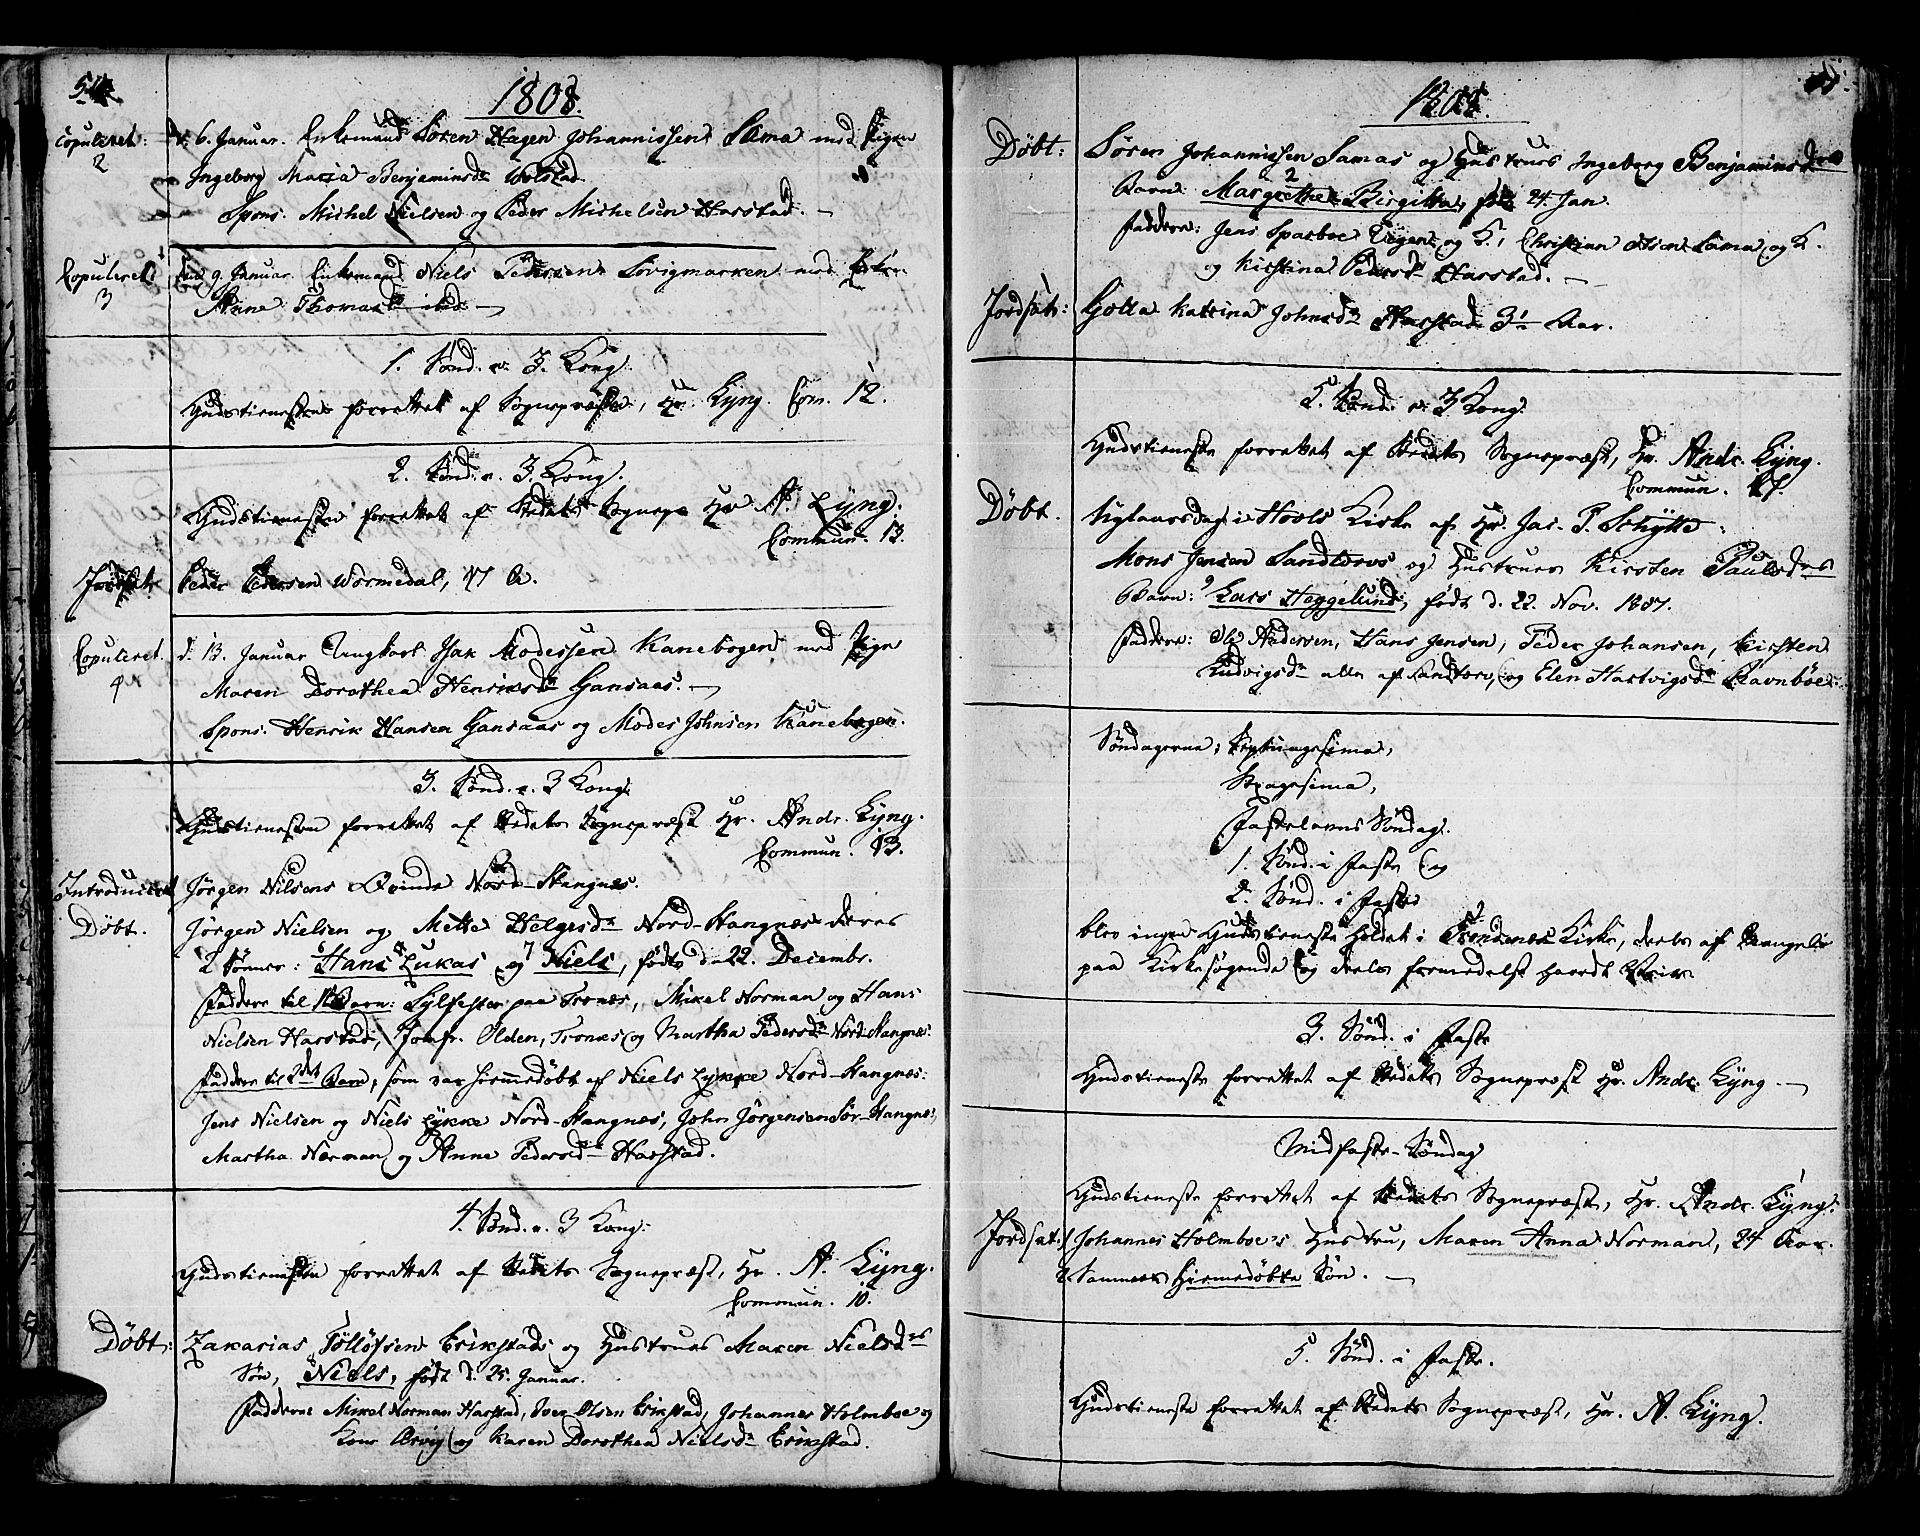 54.
1808.
Copuleret:
2
d. 6. Januar. Enkemand Sören Hagen Johannissen Sama med Pigen
Ingeborg Maria Benjaminsdr
Spons. Michel Nielsen og Peder Michelsen Harstad. —
Copuleret:
3
den 9. Januar. Enkemand Niels Pedersen Sörvigmarken med Enke
Anne Thomasdr ibid —
1. Sönd. e. 3. Kong.
Gudstienesten forrettet af Sognepræsten, Hr. Lyng. Com. 12.
2. Sönd. e. 3. Kong.
Gudstienesten forrettet af Stedets Sognepr Hr A. Lyng.
Commun. 13.
Jordsat:
Peder Pedersen Wormedal, 47 A.
Copuleret.
4
d. 13. Januar Ungkarl Isak Modessen Kanebogen med Pige
Maren Dorothea Henriksdr Gansaas. —
Spons. Henrik Hansen Gansaas og Modes Johnsen Kanebogen.
3. Sönd. e. 3 Kong.
Gudstienesten forrettet af Stedets Sognepræst Hr. Andr. Lyng.
Commun. 13.
Introduceret
Jörgen Nilsens Qvinde Nord-Stangnes.
Döbt.
Jörgen Nielsen og Mette Helgesdr Nord-Stangnes deres
2 Sönner: Hans Lukas og Niels, födte d. 22. Decembr.
Faddere til 1 Barn: Sylfester paa Tronæs, Mikel Norman og Hans
Nielsen Harstad, Jomfr. Olden, Tronæs og Martha Pedersdr Nord-Stangnes:
Faddere til 2det Barn, som var hiemmedöbt af Niels Lykke Nord-Stangnes:
Jens Nielsen og Niels Lykke Nord-Stangnes, John Jörgensen Sör-Stangnes,
Martha Norman og Anne Pedersdr Harstad.
4. Sönd. e. 3 Kong:
Gudstienesten forrettet af Stedets Sognepræst, Hr. A. Lyng.
Commun. 10.
Döbt:
Zakarias Tollöfsen Erikstads og Hustrues Maren Nielsdrs
Sön, Niels, född d. 25. Januar.
Faddere Mikel Norman Harstad, Iver Olsen Erikstad, Johannes Holmboe og
Kone Ervig og Karen Dorothea Nielsdr Erikstad.
1808.
Döbt:
Sören Johannissen Samas og Hustrues Ingeborg Benjaminsdrs
Barn: Margrethe Birgitta, föd 24. Jan.
Faddere: Jens Sparboe og K., Christian Sama og K.
og Kirstina Pedersdr Harstad. —
Jordsat:
Golla Katrina Johnsdr Harstad 3 Aar.
5. Sönd. e. 3 Kong.
Gudstieneste forrettet af Stedets Sognepræst, Hr. Andr. Lyng.
Commun. 17.
Döbt.
Nytaarsdag i Hools Kirke af Hr. Jac. P. Schytte:
Mons Jensen Sandtorvs og Hustrues Kirsten Paulsdrs
Barn: Lars Heggelund, födt d. 22. Nov. 1807.
Faddere: Ole Andersen, Hans Jensen, Peder Johansen, Kirsten
Ludvigsdr alle af Sandtorv, og Elen Hartvigsdr Ravnböe.
Söndagerne, Septuagesima,
Sexagesima,
Fastelavns Söndag.
1. Sönd. i Faste og
2. Sönd. i Faste
blev ingen Gudstieneste holdet i Trondenæs Kirke, deels af Mangel
paa Kirkesögende og deels formedelst haardt Veir.
3. Sönd. i Faste
Gudstieneste forrettet af Stedets Sognepræst Hr. Andr. Lyng. —
Midfaste-Söndag
Gudstieneste forrettet af Stedets Sognepræst, Hr. Andr. Lyng.
Jordsat:
Johannes Holmboe's Hustru, Maren Anna Norman, 24 Aar.
Sammes hiemedöbte Sön. —
5. Sönd. i Faste.
Gudstieneste forrettet af Stedets Sognepræst, Hr. A. Lyng.